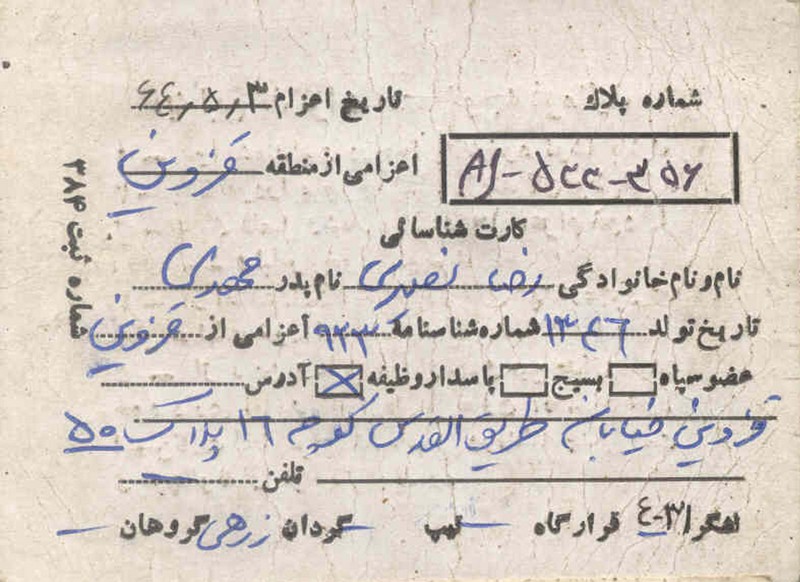 شماره پلاك تاريخ اعزام ۶۴٫۵٫۳
AJ-۵۴۴-۳۵۶ اعزامی از منطقه قزوین
كارت شناسائی
نام و نام خانوادگی رضا نصیری نام پدر مهدی
تاريخ تولد ۱۳۴۶ شماره شناسنامه ۹۲۳ اعزامی از قزوین
عضو سپاه بسيج پاسدار وظيفه آدرس
قزوین خیابان طریق القدس کوچه ۱۶ پلاک ۵۰
تلفن —
لشگر ۳-٤ قرارگاه تيپ — گردان زرهی گروهان —
شماره ثبت ۳۸۴